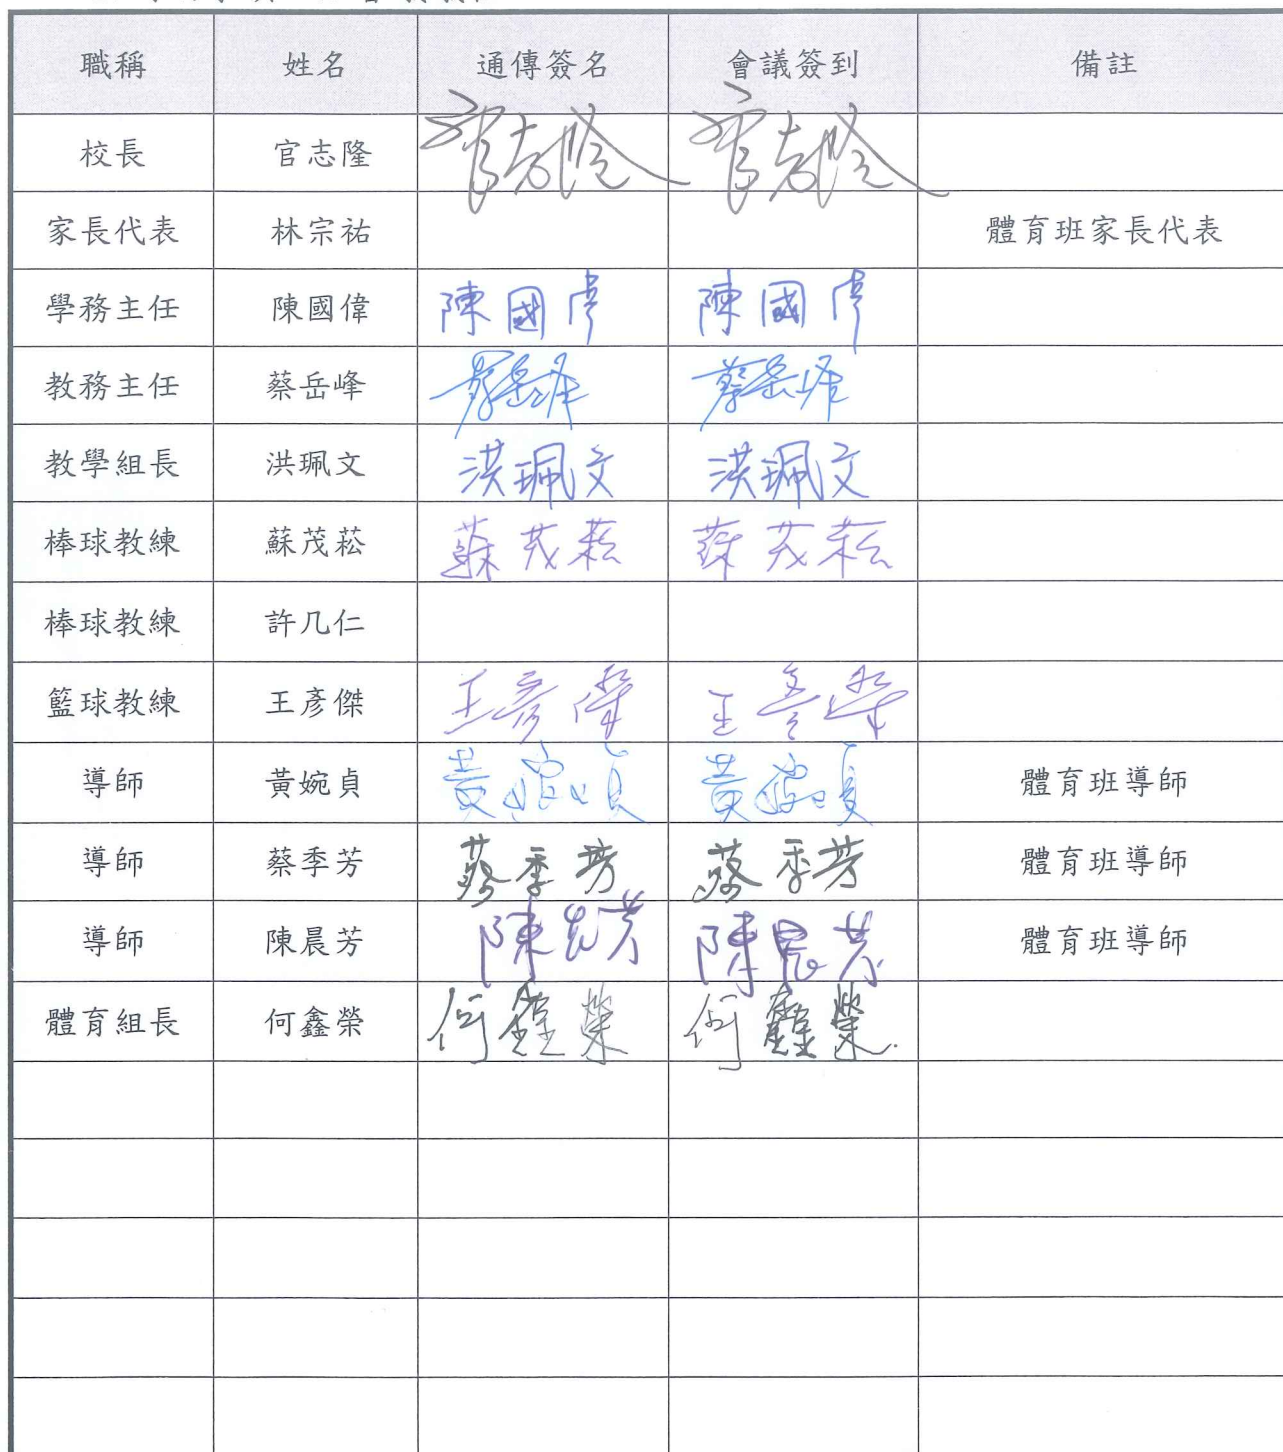 職稱 姓名 通傳簽名 會議簽到 備註
校長 官志隆 官志隆 官志隆
家長代表 林宗祐 體育班家長代表
學務主任 陳國偉 陳國偉 陳國偉
教務主任 蔡岳峰 蔡岳峰 蔡岳峰
教學組長 洪珮文 洪珮文 洪珮文
棒球教練 蘇茂菘 蘇茂菘 蘇茂菘
棒球教練 許几仁
籃球教練 王彥傑 王彥傑 王彥傑
導師 黃婉貞 黃婉貞 黃婉貞 體育班導師
導師 蔡季芳 蔡季芳 蔡季芳 體育班導師
導師 陳晨芳 陳晨芳 陳晨芳 體育班導師
體育組長 何鑫榮 何鑫榮 何鑫榮